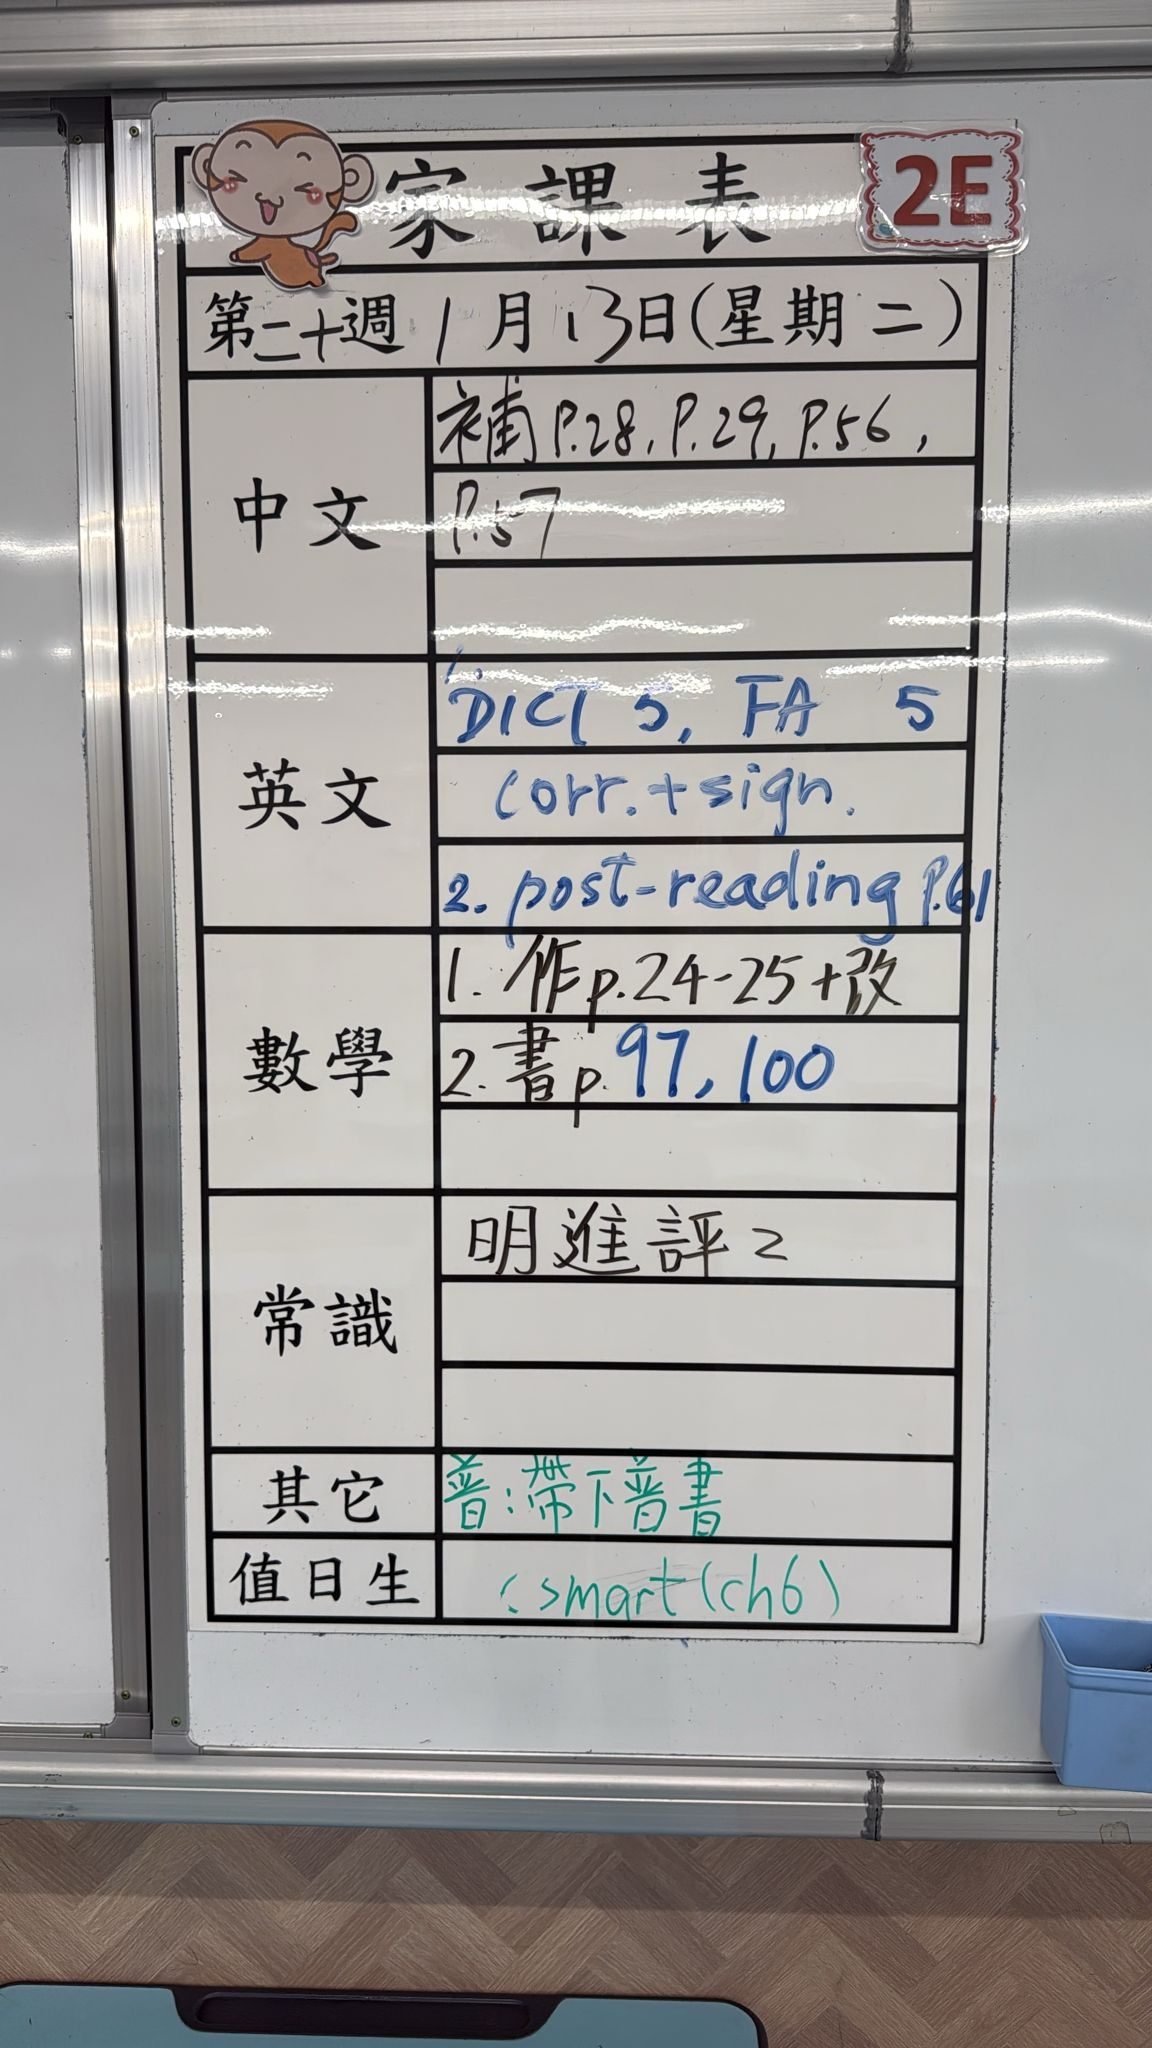 家課表
2E
第二十週 1月13日(星期二)
中文
補P.28, P.29, P.56,
P.57
英文
1. DICT 5, FA 5
corr.+sign.
2. post-reading P.61
數學
1. 作p.24-25+改
2. 書p.97, 100
常識
明進評2
其它
普:帶下普書
值日生
smart(ch6)